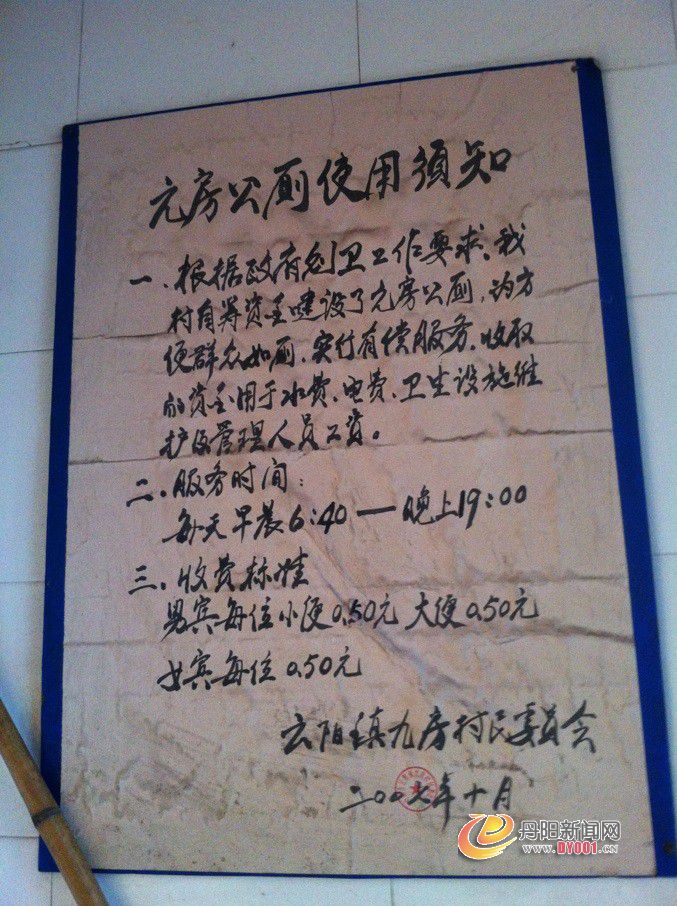 元房公厕使用须知
一、根据政府创卫工作要求,我
村自筹资金建设了元房公厕,为方
便群众如厕,实行有偿服务,收取
的资金用于水费、电费、卫生设施维
护及管理人员工资。
二、服务时间：
每天早晨6:40——晚上19:00
三、收费标准
男宾每位小便0.50元 大便0.50元
女宾每位0.50元
云阳镇九房村民委员会
二00六年十月
丹阳新闻网
WWW.DY001.CN